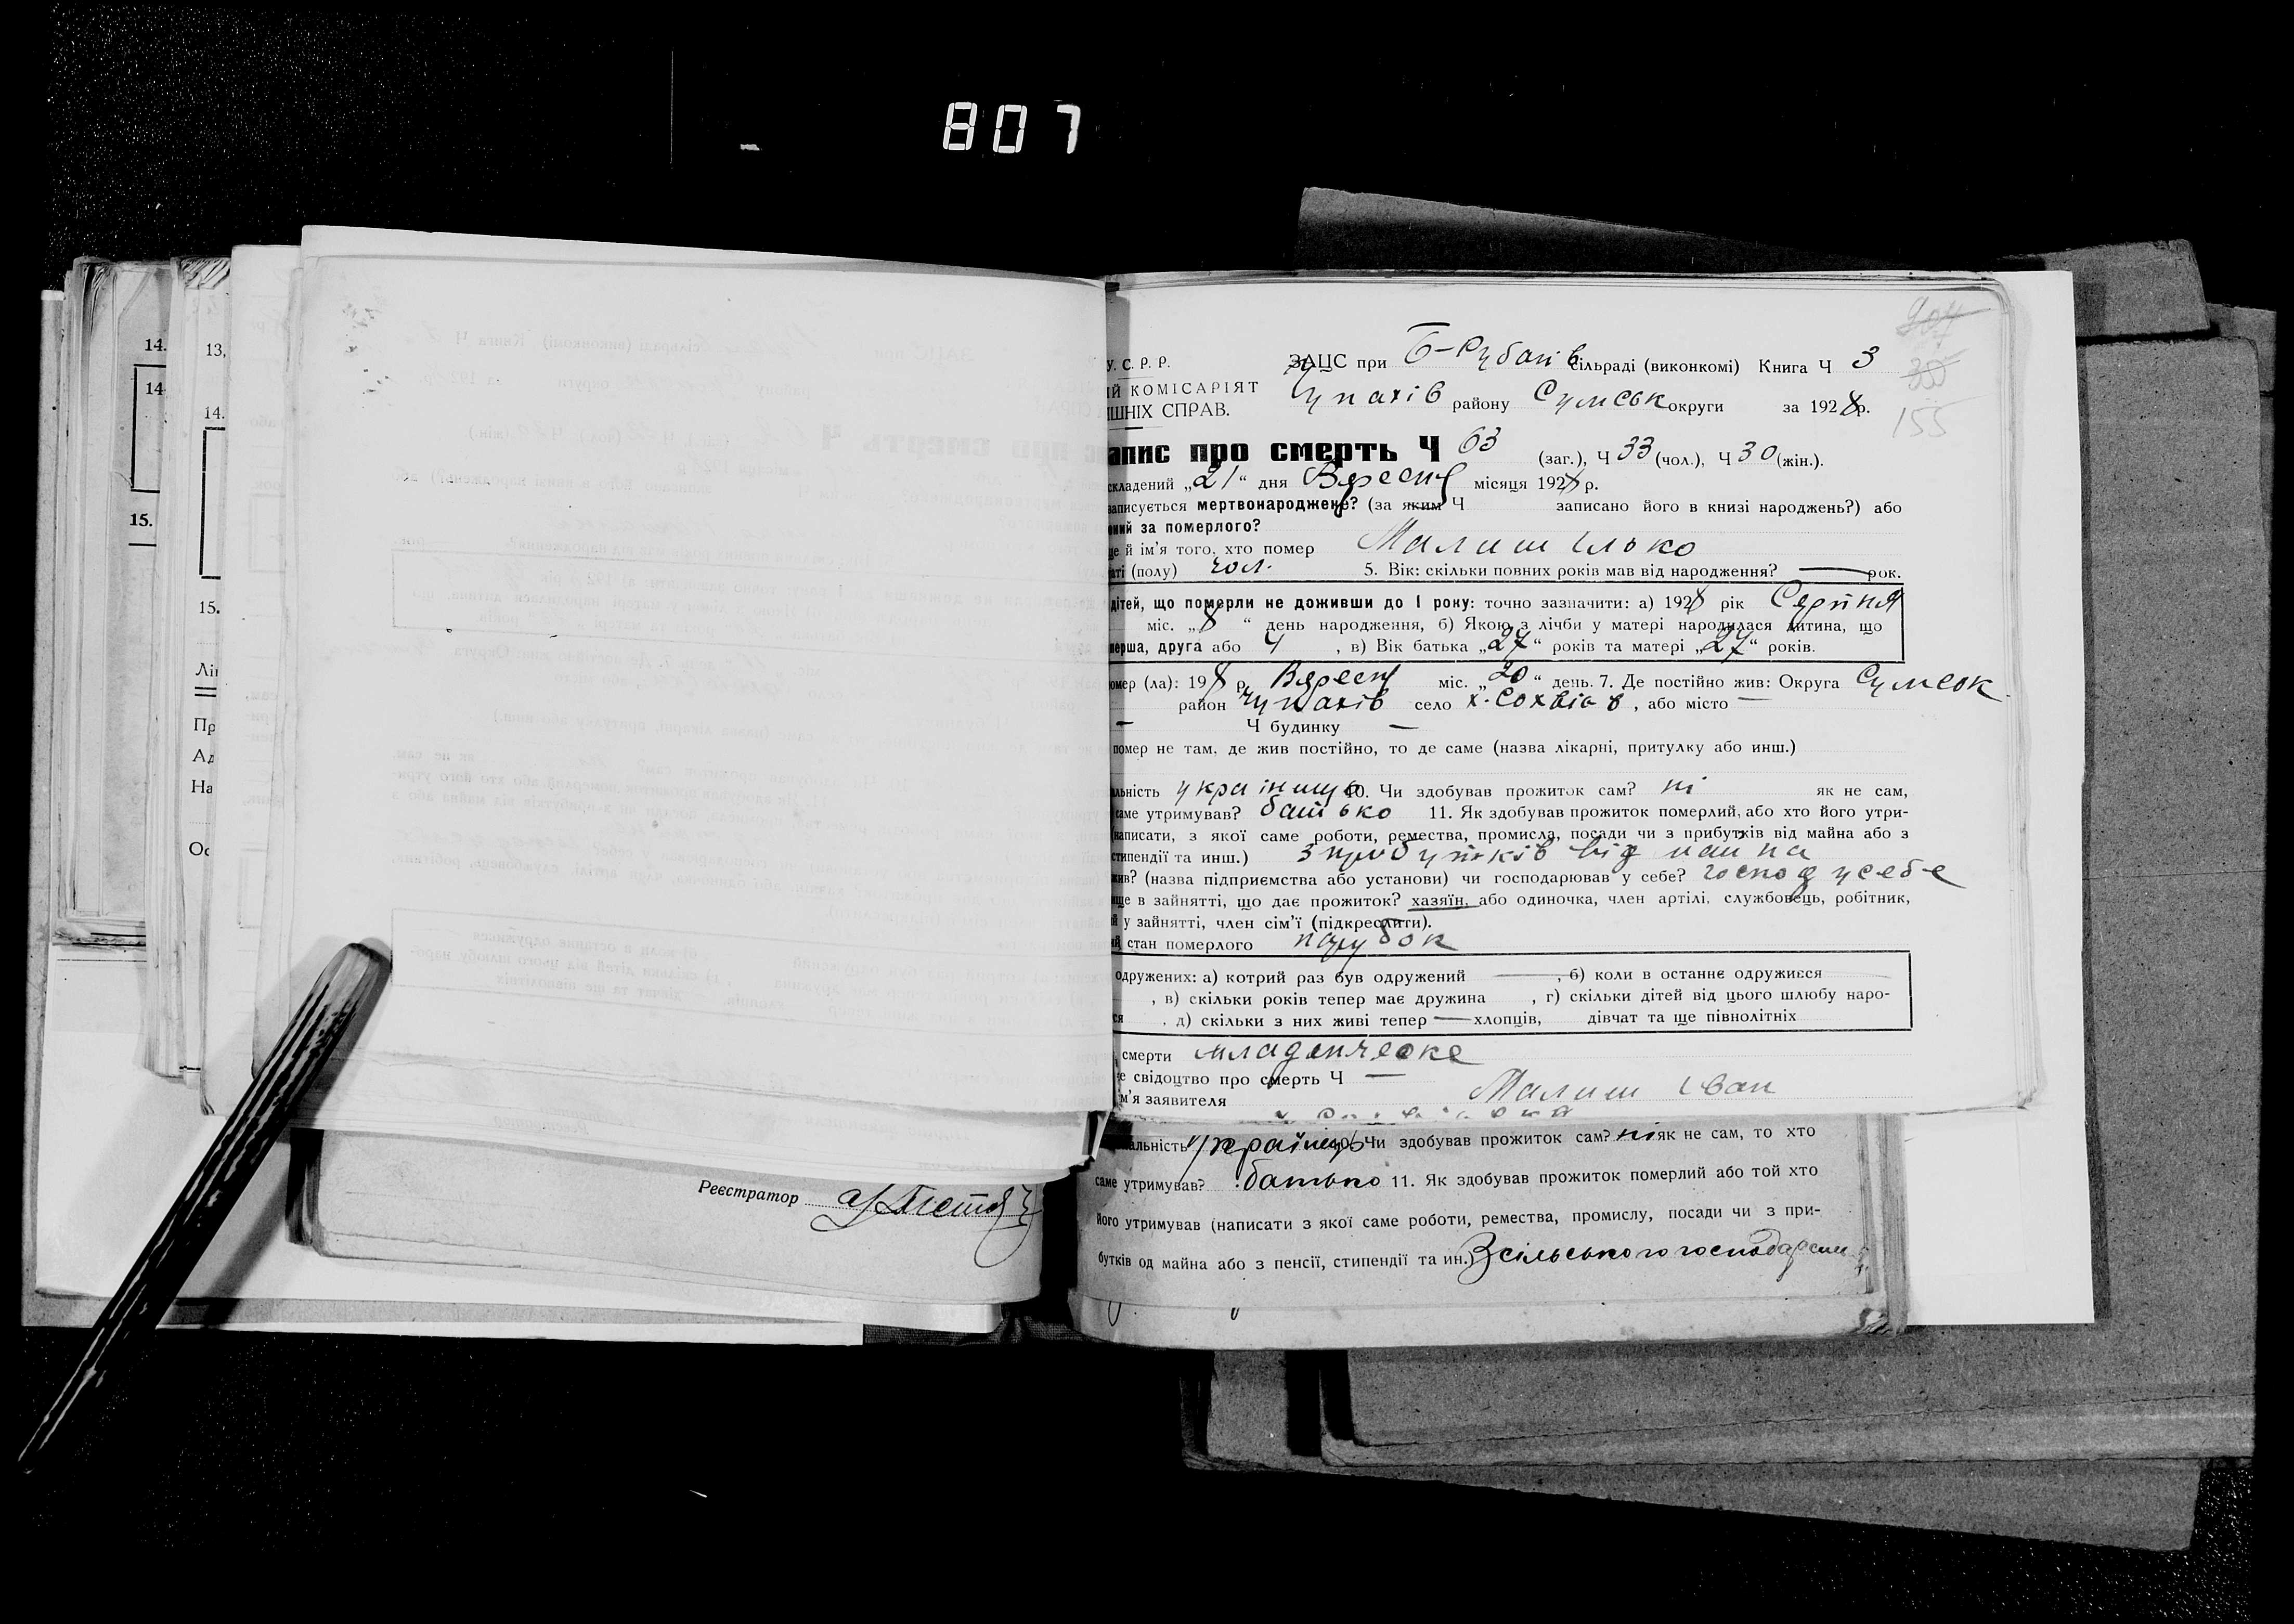 807
14.
14
15.
13,
14.
15.
Лі
Пр
Ад
На
Ос
Реєстратор
У. С. Р. Р.
ЗАЦС при Б-Рубанів сільраді (виконкомі) Книга Ч 3
Й КОМІСАРІЯТ
ШНІХ СПРАВ.
Чупахів району Сумськ округи за 1928 р.
204
155
апис про смерть Ч 63 (заг.), Ч 33 (чол.), Ч 30 (жін.).
складений „21“ дня Вересня місяця 1928 р.
записується мертвонароджене? (за яким Ч записано його в книзі народжень?) або
ений за померлого?
ще й ім'я того, хто помер Малиш Ілько
таті (полу) чол. 5. Вік: скільки повних років мав від народження? — рок.
дітей, що померли не доживши до 1 року: точно зазначити: а) 1928 рік Серпня
міс. „8“ день народження, б) Якою з лічби у матері народилася дитина, що
перша, друга або 4 , в) Вік батька „27“ років та матері „27“ років.
омер (ла): 198 р. Вересня міс. „20“ день. 7. Де постійно жив: Округа Сумськ
район Чупахів село х. Сохвіів , або місто —
— Ч будинку —
помер не там, де жив постійно, то де саме (назва лікарні, притулку або инш.)
альність українець 10. Чи здобував прожиток сам? ні як не сам,
саме утримував? батько 11. Як здобував прожиток померлий, або хто його утри-
(написати, з якої саме роботи, ремества, промисла, посади чи з прибутків від майна або з
стипендії та инш.) з прибутків від майна
жив? (назва підприємства або установи) чи господарював у себе? господ у себе
ище в зайнятті, що дає прожиток? хазяїн, або одиночка, член артілі, службовець, робітник,
й у зайнятті, член сім'ї (підкреслити).
ий стан померлого парубок
одружених: а) котрий раз був одружений — , б) коли в останнє одружився
, в) скільки років тепер має дружина , г) скільки дітей від цього шлюбу наро-
ся , д) скільки з них живі тепер — хлопців, дівчат та ще півнолітніх
смерти младенческе
е свідоцтво про смерть Ч —
м'я заявителя Малиш Іван
альність українець 10. Чи здобував прожиток сам? ні як не сам, то хто
саме утримував? батько 11. Як здобував прожиток померлий або той хто
його утримував (написати з якої саме роботи, ремества, промислу, посади чи з при-
бутків од майна або з пенсії, стипендії та ин.) З сільського господарства